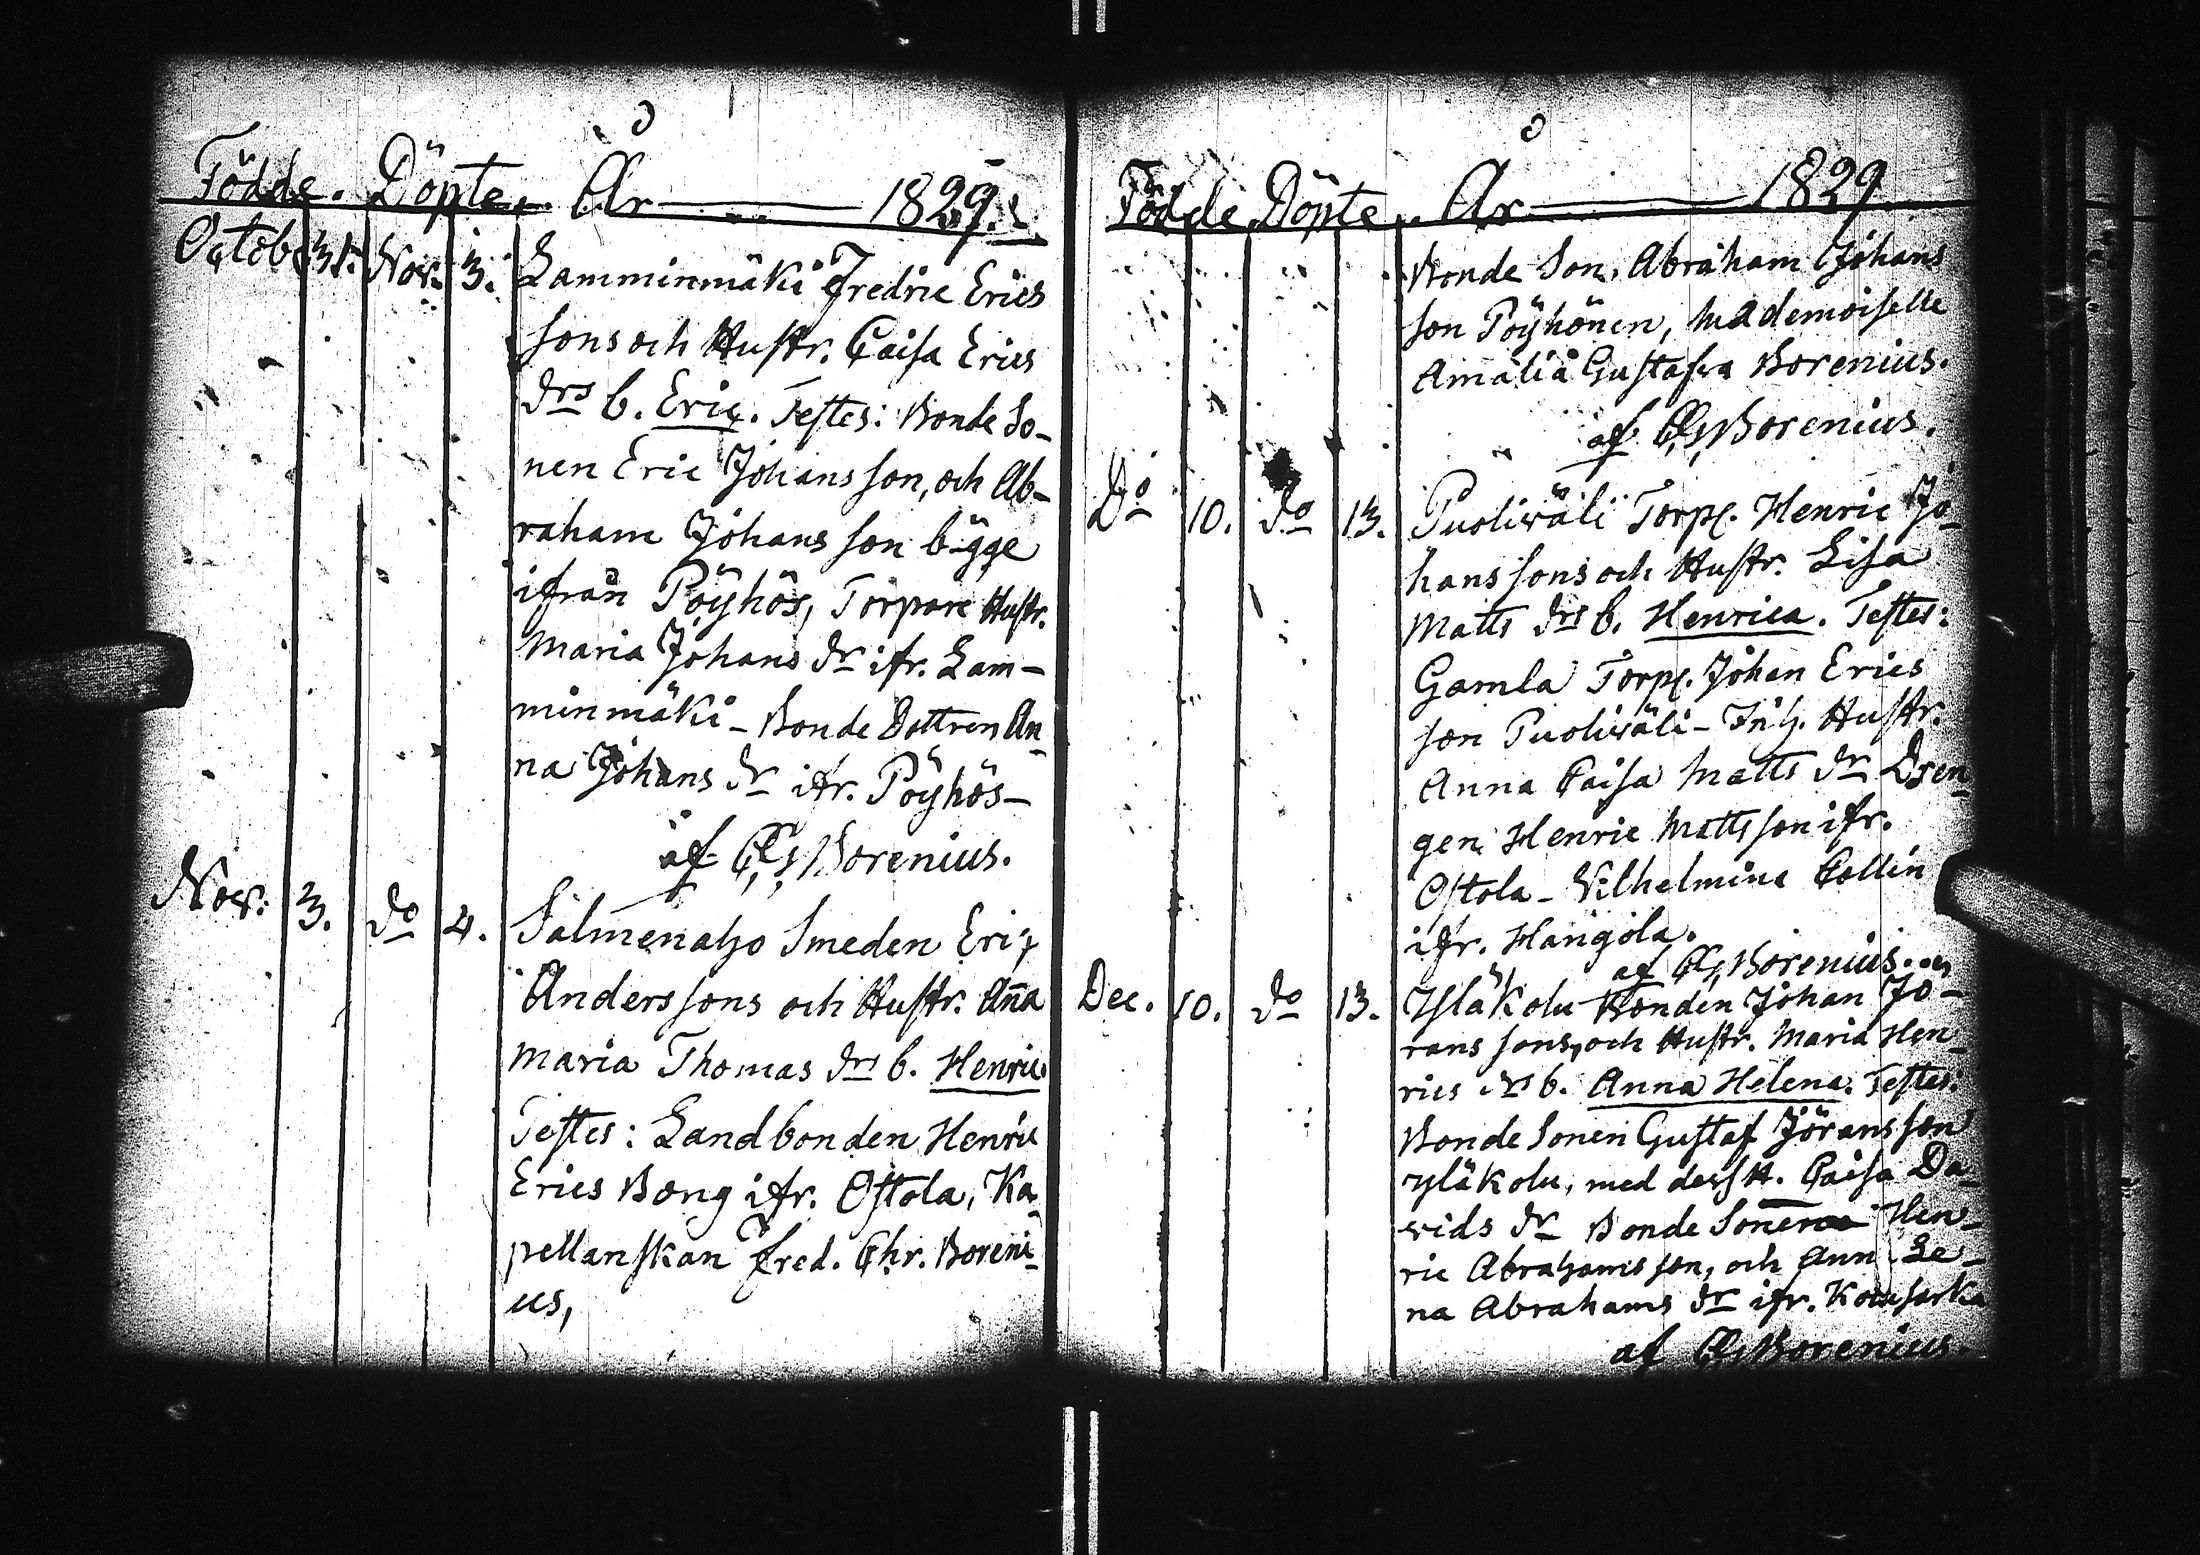 Födde. Döpte. År 1829.
October 31. Nov. 3. Lamminmäki Fredric Erics
sons och Hustr. Caisa Erics
drs b. Eric. Testes: Bonde So-
nen Eric Johansson, och Ab-
raham Johansson bägge
ifrån Pöyhös, Torpare Hustr.
Maria Johans dr ifr. Lam-
minmäki - Bonde Dottren An-
na Johans dr ifr. Pöyhös-
af Borenius.
Nov: 3. do 4. Salmenaho Smeden Eric
Anderssons och Hustr. Anna
Maria Thomas drs b. Henric
Testes: Landbonden Henric
Erics Bong ifr. Ostola, Ka-
pellanskan Fred. Chr. Boreni-
us,
Födde Döpte År 1829
Bonde Son. Abraham Johans
son Pöyhönen, Mademoiselle
Amalia Gustafva Borenius.
af Borenius.
Do 10. do 13. Puoliväli Torp. Henric Jo-
hanssons och Hustr. Lisa
Matts drs b. Henrica. Testes:
Gamla Torp. Johan Erics
son Puoliväli - Inh. Hustr.
Anna Caisa Matts dr Dren-
gen Henric Mattsson ifr.
Ostola - Vilhelmina Collin
ifr. Hangöla.
af Borenius.
Dec. 10. do 13. Yläkolu Bonden Johan Jö-
ranssons, och Hustr. Maria Hen-
rics drs b. Anna Helena. Testes:
Bonde Sonen Gustaf Jöransson
Yläkolu, med dess H. Caisa Da-
vids dr Bonde Sonen Hen-
ric Abrahamsson, och Anna Le-
na Abrahams dr ifr.
af Borenius.